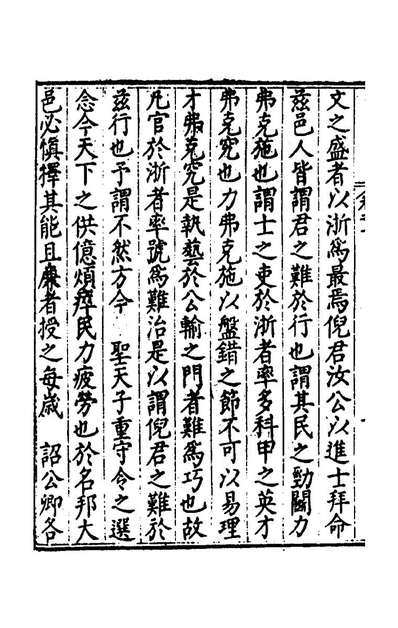 文之盛者以浙爲最焉倪君汝公以進士拜命
茲邑人皆謂君之難於行也謂其民之勁關力
弗克施也謂士之吏於浙者率多科甲之英才
弗克究也力弗克施以盤錯之節不可以易理
才弗克究是執藝於公輸之門者難爲巧也故
凡官於浙者率號爲難治是以謂倪君之難於
茲行也予謂不然方今 聖天子重守令之選
念今天下之供億煩瘁民力疲勞也於名邦大
邑必慎擇其能且廉者授之每歲 詔公卿各